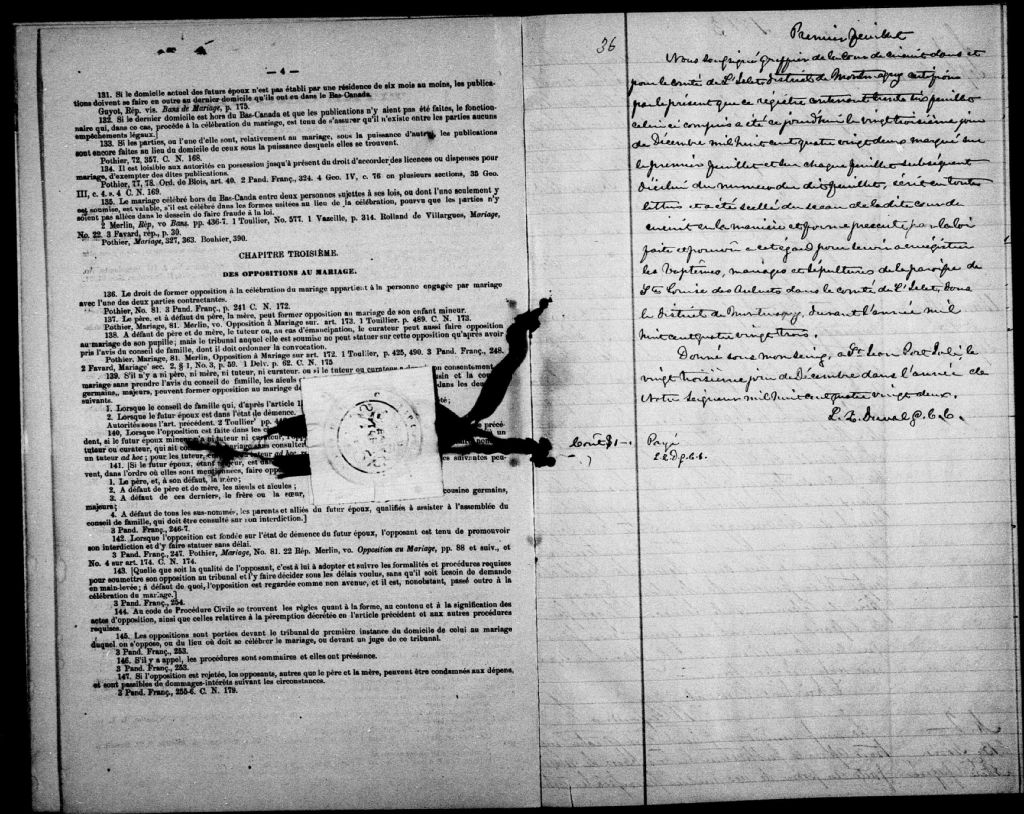 — 4 —
131. Si le domicile actuel des futurs époux n'est pas établi par une résidence de six mois au moins, les publica-
tions doivent se faire en outre au dernier domicile qu'ils ont eu dans le Bas-Canada.
Guyot, Rép. vis. Bans de Mariage, p. 175.
132. Si le dernier domicile est hors du Bas-Canada et que les publications n'y aient pas été faites, le fonction-
naire qui, dans ce cas, procède à la célébration du mariage, est tenu de s'assurer qu'il n'existe entre les parties aucuns
empêchements légaux.]
133. Si les parties, ou l'une d'elle sont, relativement au mariage, sous la puissance d'autrui, les publications
sont encore faites au lieu du domicile de ceux sous la puissance desquels elles se trouvent.
Pothier, 72, 357. C. N. 168.
134. Il est loisible aux autorités en possession jusqu'à présent du droit d'accorder des licences ou dispenses pour
mariage, d'exempter des dites publications.
Pothier, 77, 78. Ord. de Blois, art. 40. 2 Pand. Franç., 324. 4 Geo. IV, c. 76 en plusieurs sections, 35 Geo.
III, c. 4. s. 4 C. N. 169.
135. Le mariage célébré hors du Bas-Canda entre deux personnes sujettes à ses lois, ou dont l'une seulement y
est soumise, est valable, s'il est célébré dans les formes usitées au lieu de la célébration, pourvu que les parties n'y
soient pas allées dans le dessein de faire fraude à la loi.
2 Merlin, Rép, vo Bans. pp. 436-7. 1 Toullier, No. 577. 1 Vazeille, p. 314. Rolland de Villargues, Mariage,
No. 22. 3 Favard, rép., p. 30.
Pothier, Mariage, 327, 363. Bouhier, 390.
CHAPITRE TROISIÈME.
DES OPPOSITIONS AU MARIAGE.
136. Le droit de former opposition à la célébration du mariage appartient à la personne engagée par mariage
avec l'une des deux parties contractantes.
Pothier, No. 81. 3 Pand. Franç., p. 241 C. N. 172.
137. Le père, et à défaut du père, la mère, peut former opposition au mariage de son enfant mineur.
Pothier, Mariage, 81. Merlin, vo. Opposition à Mariage sur. art. 173. 1 Touillier, p. 489. C. N. 173.
138. A défaut de père et de mère, le tuteur ou, au cas d'émancipation, le curateur peut aussi faire opposition
au mariage de son pupille; mais le tribunal auquel elle est soumise ne peut statuer sur cette opposition qu'après avoir
pris l'avis du conseil de famille, dont il doit ordonner la convocation.
Pothier, Mariage, 81. Merlin, Opposition à Mariage sur art. 172. 1 Toullier, p. 425, 490. 3 Pand. Franç., 248.
2 Favard, Mariage sec. 2. § 1, No. 3, p. 59. 1 Delv. p. 62. C. N. 175
139. S'il n'y a ni père, ni mère, ni tuteur, ni curateur, ou si le tuteur ou curateur a consentement
mariage sans prendre l'avis du conseil de famille, les aïeuls
germains, majeurs, peuvent former opposition au mariage de
suivants.
1. Lorsque le conseil de famille qui, d'après l'article
2. Lorsque le futur époux est dans l'état de démence.
Autorités sous l'art. précédent. 2 Toullier pp.
140. Lorsque l'opposition est faite dans les
dent, si le futur époux mineur n'a ni tuteur ni curateur,
tuteur ou curateur, qui ait mariage sans consulter
un tuteur ad hoc; pour les tuteur,
141. [Si le futur époux, étant majeur, est suivantes peu-
vent, dans l'ordre où elles sont mentionnées, faire
1. Le père, et, à son défaut, la mère;
2. A défaut de père et de mère, les aïeuls et aïeules;
3. A défaut de ces derniers, le frère ou la sœur, cousine germains,
majeurs;
4. A défaut de tous les sus-nommés, les parents et alliés du futur époux, qualifiés à assister à l'assemblée du
conseil de famille, qui doit être consulté sur son interdiction.]
3 Pand. Franç., 246-7.
142. Lorsque l'opposition est fondée sur l'état de démence du futur époux, l'opposant est tenu de promouvoir
son interdiction et d'y faire statuer sans délai.
3 Pand. Franç., 247. Pothier, Mariage, No. 81. 22 Rép. Merlin, vo. Opposition au Mariage, pp. 88 et suiv., et
No. 4 sur art. 174. C. N. 174.
143. [Quelle que soit la qualité de l'opposant, c'est à lui à adopter et suivre les formalités et procédures requises
pour soumettre son opposition au tribunal et l'y faire décider sous les délais voulus, sans qu'il soit besoin de demande
en main-levée; à défaut de quoi, l'opposition est regardée comme non avenue, et il est, nonobstant, passé outre à la
célébration du mariage.]
3 Pand. Franç., 254.
144. Au code de Procédure Civile se trouvent les règles quant à la forme, au contenu et à la signification des
actes d'opposition, ainsi que celles relatives à la péremption décrétée en l'article précédent et aux autres procédures
requises.
145. Les oppositions sont portées devant le tribunal de première instance du domicile de celui au mariage
duquel on s'oppose, ou du lieu où doit se célébrer le mariage, ou devant un juge de ce tribunal.
3 Pand. Franç., 253.
146. S'il y a appel, les procédures sont sommaires et elles ont préséance.
3 Pand. Franç., 253.
147. Si l'opposition est rejetée, les opposants, autres que le père et la mère, peuvent être condamnés aux dépens,
et sont passibles de dommages-intérêts suivant les circonstances.
3 Pand. Franç., 255-6. C. N. 179.
36
Premier feuillet
Nous soussigné Greffier de la Cour de circuit dans et
pour le comté de L'Islet District de Montmagny certifions
par le présent que ce régistre contenant trente six feuillets
celui ci compris a été ce jourd'hui le vingt troisième jour
de Décembre mil huit cent quatre vingt deux marqué sur
le premier feuillet et sur chaque feuillet subséquent
du numéro du dit feuillet, écrit en toutes
lettres et a été scellé du sceau de la dite cour de
circuit en la manière et forme prescrite par la loi
faite et pourvue à cet égard pour servir à enregistrer
les Baptêmes, mariages et sépultures de la paroisse de
Ste Louise des Aulnets dans le comté de L'Islet, dans
le District de Montmagny, durant l'année mil
huit cent quatre vingt trois.
Donné sous mon seing, a St Jean Port Joli, le
vingt troisième jour de Décembre dans l'année de
Notre Seigneur mil huit cent quatre vingt deux.
Duval G.C.C.
Coût $1–
Payé